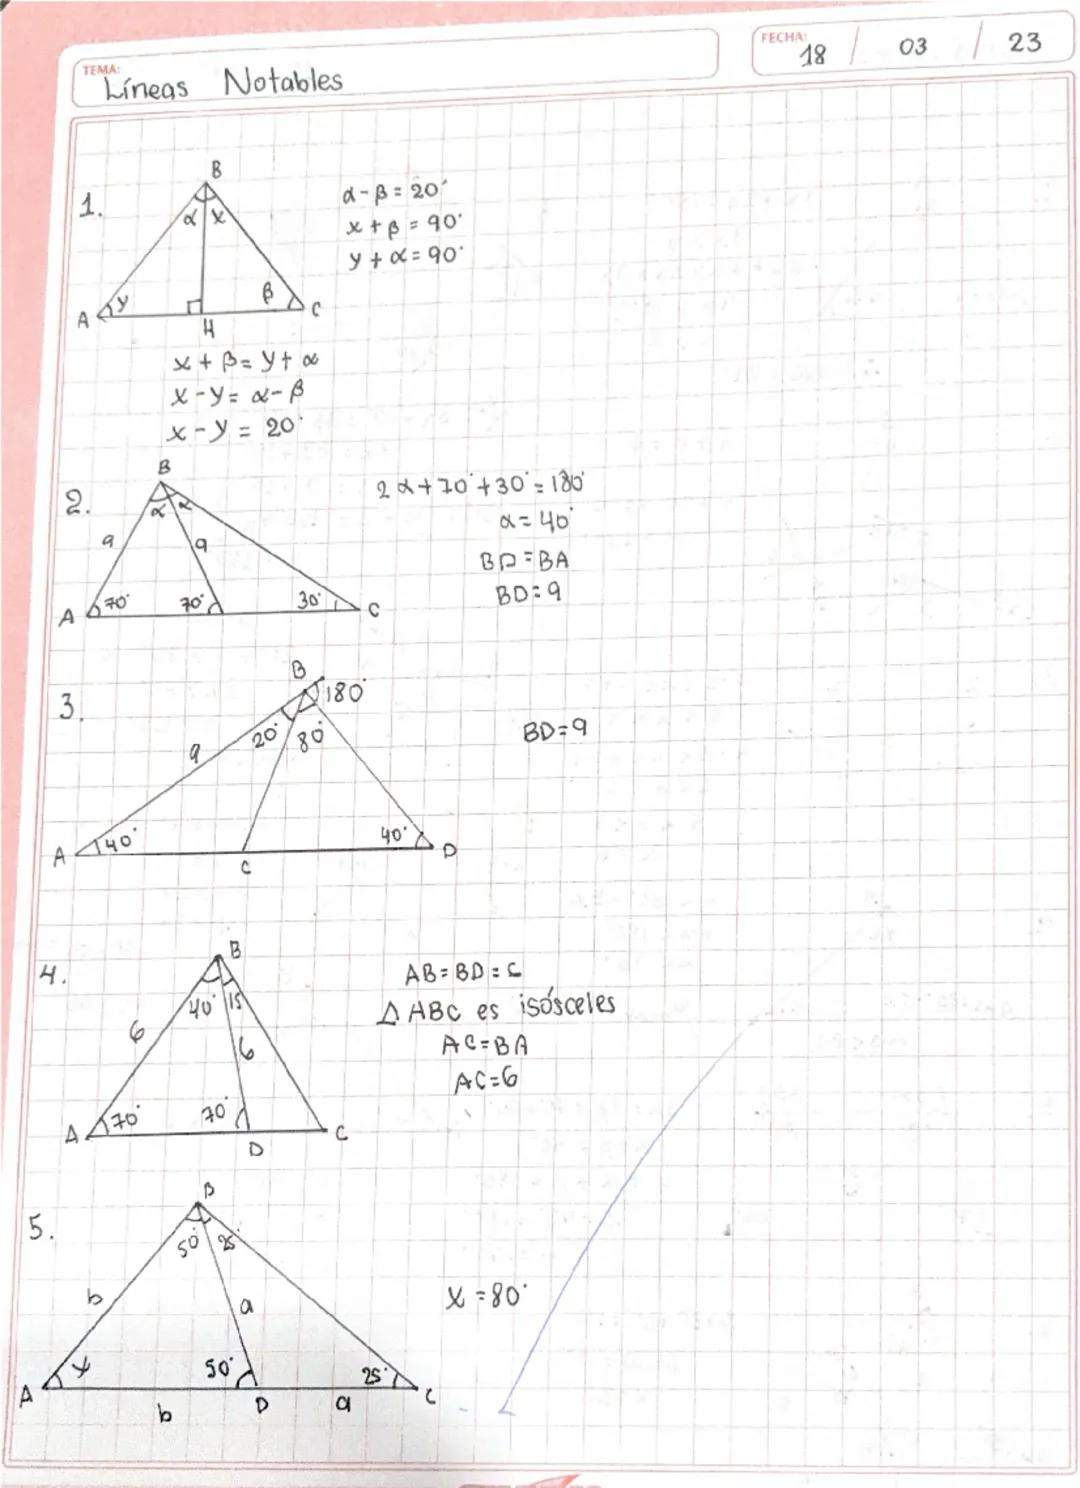 TEMA:
Líneas Notables
FECHA:
18 / 03 / 23
1.
B
α x
y
β
A
H
C
α-β=20°
x+β=90°
y+α=90°
x+β=y+α
x-y=α-β
x-y=20°
2.
B
α α
a
a
70°
70°
30°
A
C
2α+70°+30°=180°
α=40°
BD=BA
BD=9
3.
B
180°
20°
80°
9
40°
40°
A
C
D
BD=9
4.
B
40° 15
6
6
70°
70°
A
D
C
AB=BD=C
△ABC es isósceles
AC=BA
AC=6
5.
B
50° 25°
b
a
x
50°
25°
A
b
D
a
C
x=80°